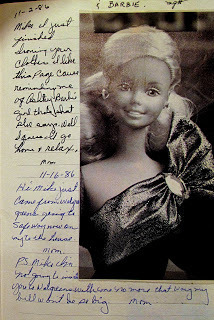 11-2-86
& BARBIE.
Mike I just
finished
ironing your
clothes I like
this Page Cause
reminding me
of
girl that's what
she says. Well
I should go
home & relax,
Mom
11-16-86
Hi Mike just
Came from
going to
Safeway now on
my to the house.
Mom
PS Mike
not going to
you to Walgreens with me no more that way my
bill won't be so big Mom